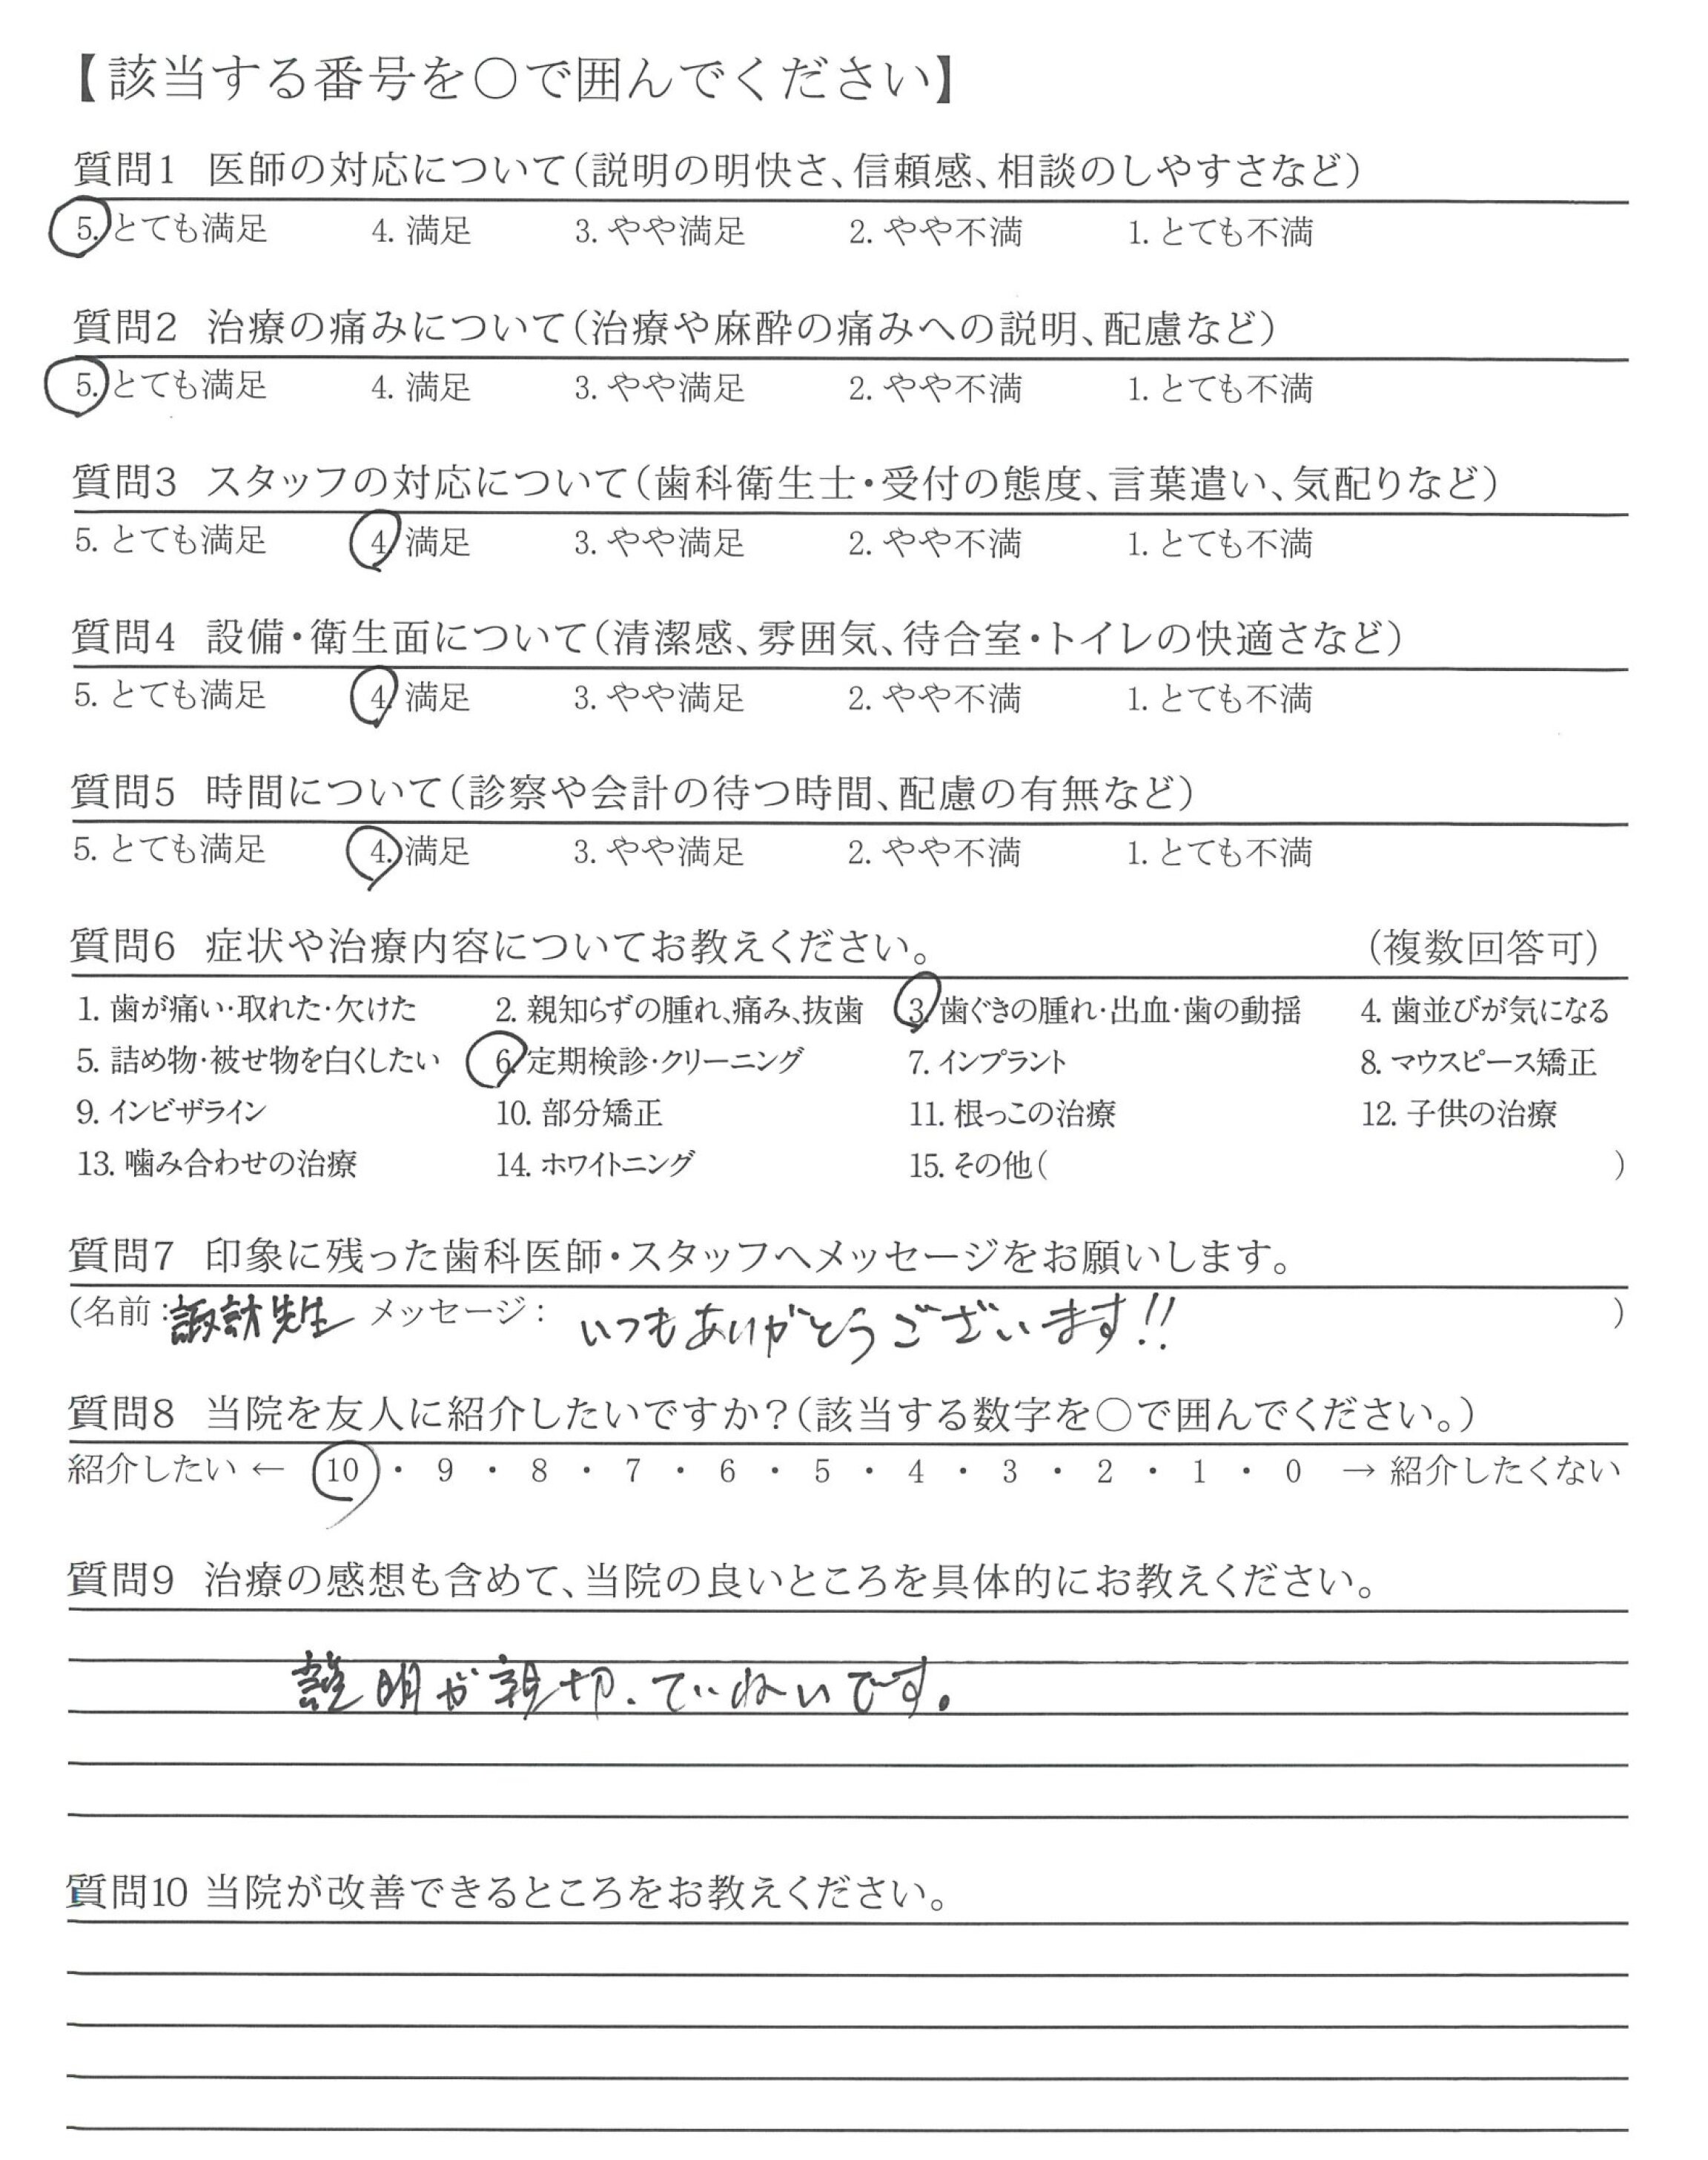 【該当する番号を○で囲んでください】
質問1 医師の対応について(説明の明快さ、信頼感、相談のしやすさなど)
5. とても満足 4. 満足 3. やや満足 2. やや不満 1. とても不満
質問2 治療の痛みについて(治療や麻酔の痛みへの説明、配慮など)
5. とても満足 4. 満足 3. やや満足 2. やや不満 1. とても不満
質問3 スタッフの対応について(歯科衛生士・受付の態度、言葉遣い、気配りなど)
5. とても満足 4. 満足 3. やや満足 2. やや不満 1. とても不満
質問4 設備・衛生面について(清潔感、雰囲気、待合室・トイレの快適さなど)
5. とても満足 4. 満足 3. やや満足 2. やや不満 1. とても不満
質問5 時間について(診察や会計の待つ時間、配慮の有無など)
5. とても満足 4. 満足 3. やや満足 2. やや不満 1. とても不満
質問6 症状や治療内容についてお教えください。 (複数回答可)
1. 歯が痛い・取れた・欠けた 2. 親知らずの腫れ、痛み、抜歯 3. 歯ぐきの腫れ・出血・歯の動揺 4. 歯並びが気になる
5. 詰め物・被せ物を白くしたい 6. 定期検診・クリーニング 7. インプラント 8. マウスピース矯正
9. インビザライン 10. 部分矯正 11. 根っこの治療 12. 子供の治療
13. 噛み合わせの治療 14. ホワイトニング 15. その他( )
質問7 印象に残った歯科医師・スタッフへメッセージをお願いします。
(名前:諏訪先生 メッセージ: いつもありがとうございます!! )
質問8 当院を友人に紹介したいですか?(該当する数字を○で囲んでください。)
紹介したい ← 10 ・ 9 ・ 8 ・ 7 ・ 6 ・ 5 ・ 4 ・ 3 ・ 2 ・ 1 ・ 0 → 紹介したくない
質問9 治療の感想も含めて、当院の良いところを具体的にお教えください。
説明が親切、ていねいです。
質問10 当院が改善できるところをお教えください。